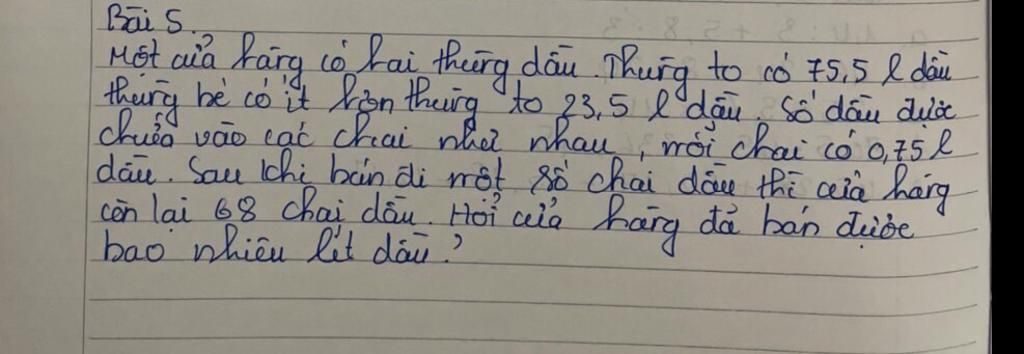 Bài 5.
Một cửa hàng có hai thùng dầu. Thùng to có 75,5 l dầu
thùng bé có ít hơn thùng to 23,5 l dầu. Số dầu được
chứa vào các chai như nhau, mỗi chai có 0,75 l
dầu. Sau khi bán đi một số chai dầu thì cửa hàng
còn lại 68 chai dầu. Hỏi cửa hàng đã bán được
bao nhiêu lít dầu?